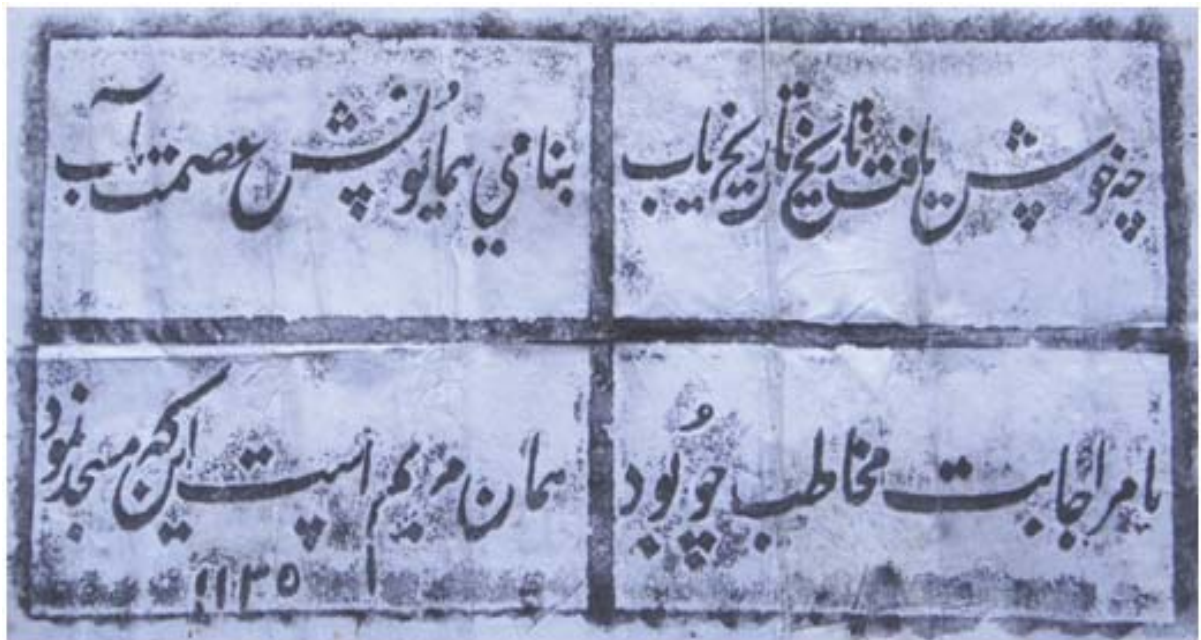 چه خوش یافت تاریخ تاریخ یاب
بنامي همایونش عصمت مآب
بامر اجابت مخاطب چو بود
همان مریم است این که مسجد نمود
۱۱۳۵